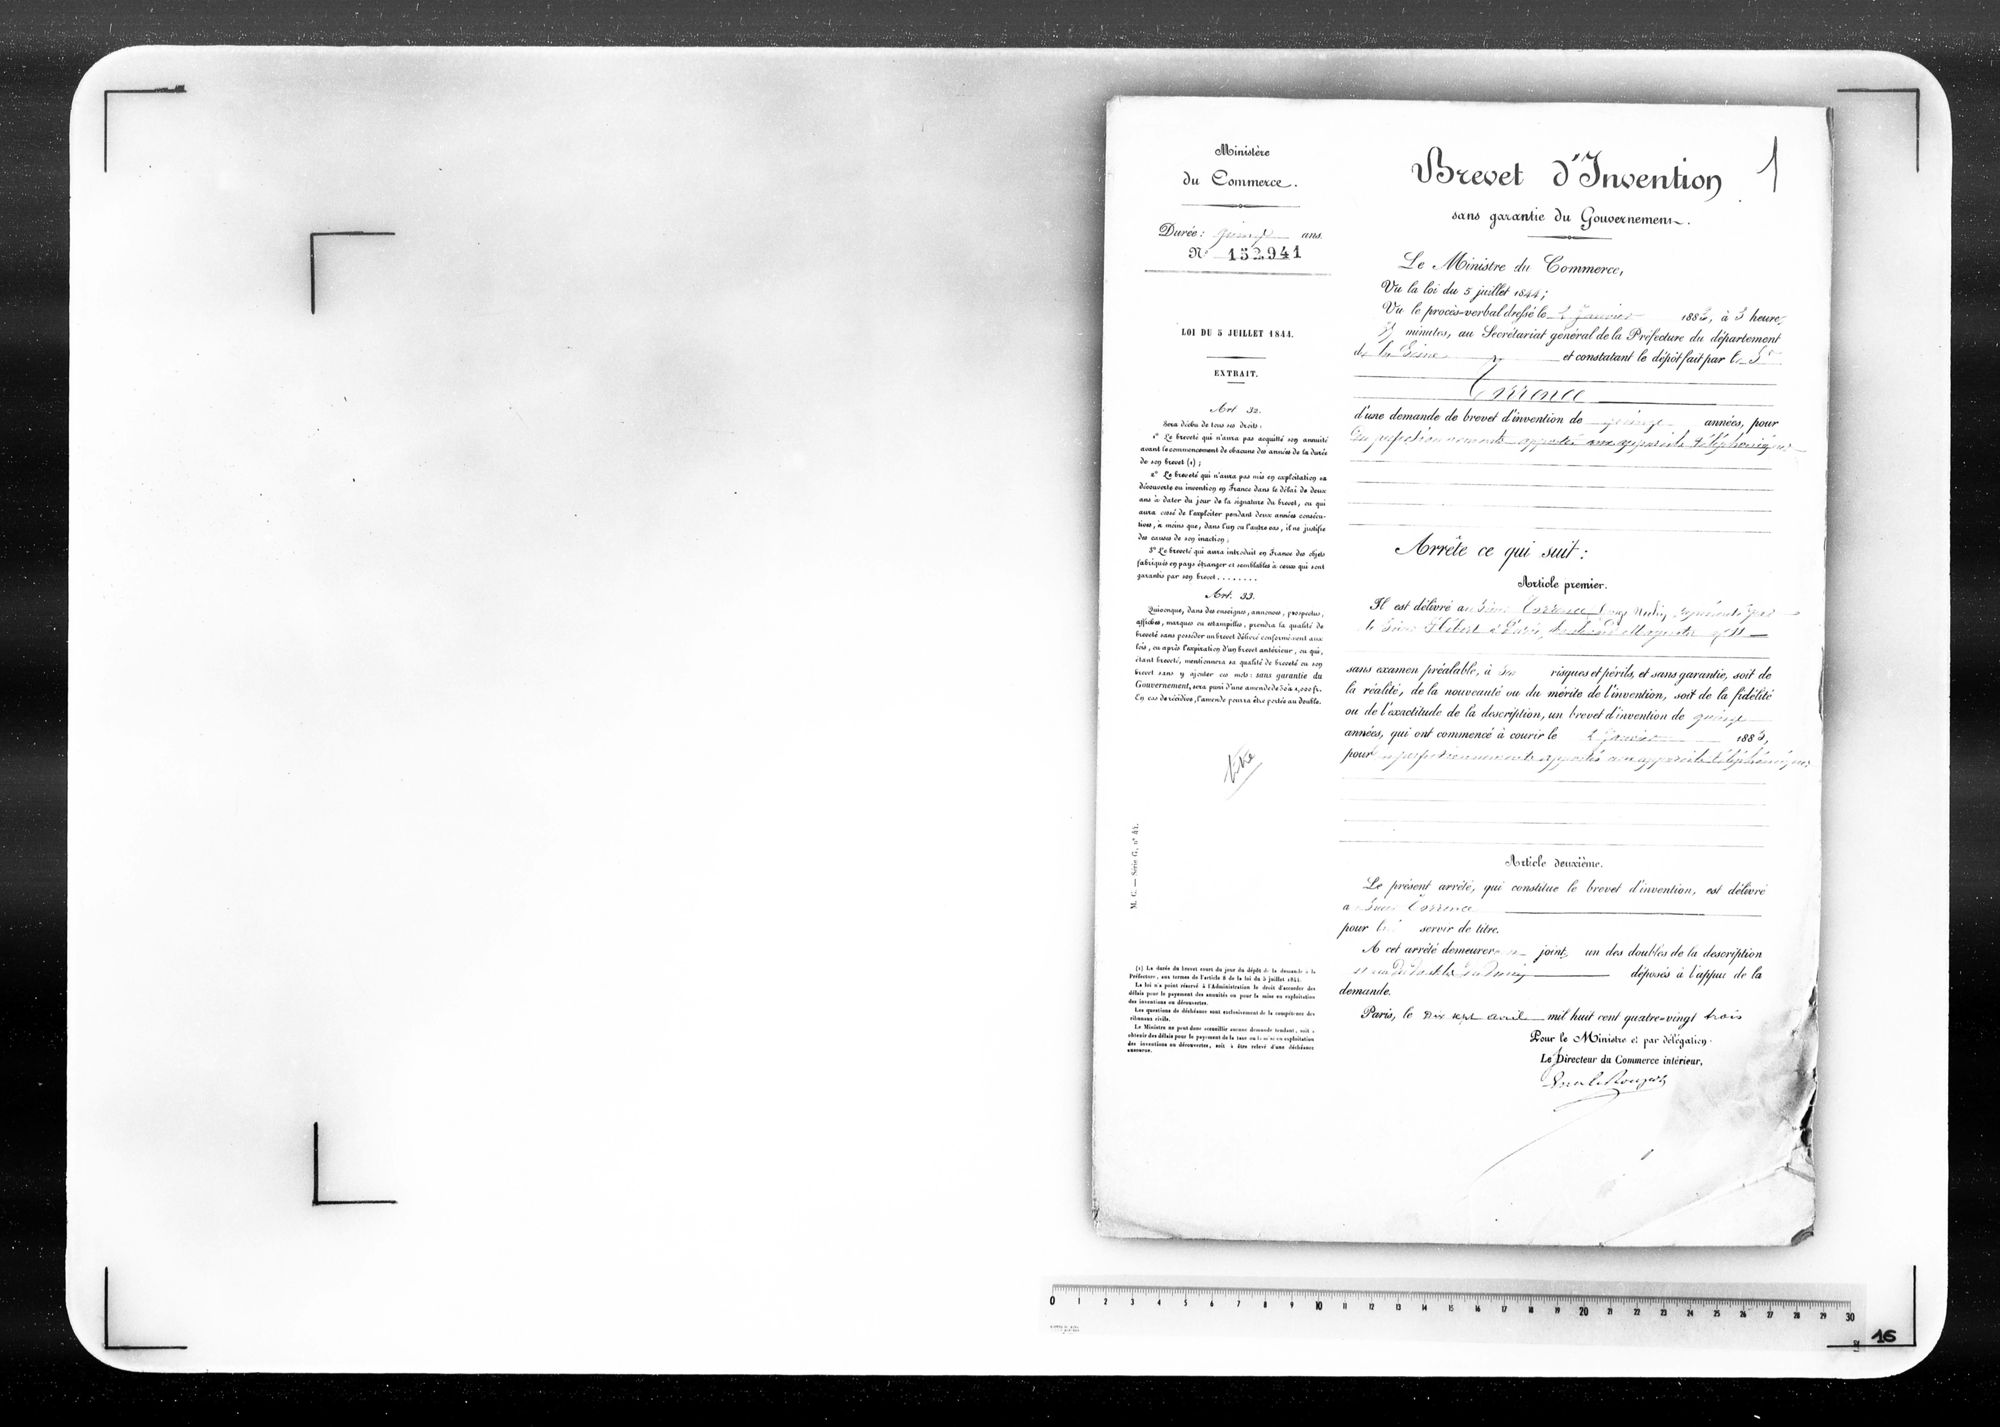 Ministère
du Commerce.
Durée: quinze ans.
N° 152,941
LOI DU 5 JUILLET 1844.
EXTRAIT.
Art. 32.
Sera déchu de tous ses droits:
1° Le breveté qui n'aura pas acquitté son annuité
avant le commencement de chacune des années de la durée
de son brevet (1);
2° Le breveté qui n'aura pas mis en exploitation sa
découverte ou invention en France dans le délai de deux
ans à dater du jour de la signature du brevet, ou qui
aura cessé de l'exploiter pendant deux années consécu-
tives, à moins que, dans l'un ou l'autre cas, il ne justifie
des causes de son inaction;
3° Le breveté qui aura introduit en France des objets
fabriqués en pays étranger et semblables à ceux qui sont
garantis par son brevet........
Art. 33.
Quiconque, dans des enseignes, annonces, prospectus,
affiches, marques ou estampilles, prendra la qualité de
breveté sans posséder un brevet délivré conformément aux
lois, ou après l'expiration d'un brevet antérieur, ou qui,
étant breveté, mentionnera sa qualité de breveté ou son
brevet sans y ajouter ces mots: sans garantie du
Gouvernement, sera puni d'une amende de 50 à 1,000 fr.
En cas de récidive, l'amende pourra être portée au double.
M. C. — Série G, n° 47.
(1) La durée du brevet court du jour du dépôt de la demande à la
Préfecture, aux termes de l'article 8 de la loi du 5 juillet 1844.
La loi n'a point réservé à l'Administration le droit d'accorder des
délais pour le payement des annuités ou pour la mise en exploitation
des inventions ou découvertes.
Les questions de déchéance sont exclusivement de la compétence des
tribunaux civils.
Le Ministre ne peut donc accueillir aucune demande tendant, soit à
obtenir des délais pour le payement de la taxe ou la mise en exploitation
des inventions ou découvertes, soit à être relevé d'une déchéance
encourue.
1
Brevet d'Invention
sans garantie du Gouvernement.
Le Ministre du Commerce,
Vu la loi du 5 juillet 1844;
Vu le procès-verbal dressé le 2 Janvier 1883, à 3 heures
minutes, au Secrétariat général de la Préfecture du département
de la Seine et constatant le dépôt fait par le Sr
Torrence
d'une demande de brevet d'invention de quinze années, pour
des perfectionnements apportés aux appareils téléphoniques
Arrête ce qui suit:
Article premier.
Il est délivré au Sieur Torrence représenté par
le Sieur Hébert à Paris,
sans examen préalable, à ses risques et périls, et sans garantie, soit de
la réalité, de la nouveauté ou du mérite de l'invention, soit de la fidélité
ou de l'exactitude de la description, un brevet d'invention de quinze
années, qui ont commencé à courir le 2 Janvier 1883,
pour des perfectionnements apportés aux appareils téléphoniques
Article deuxième.
Le présent arrêté, qui constitue le brevet d'invention, est délivré
au Sieur Torrence
pour lui servir de titre.
A cet arrêté demeurera joint un des doubles de la description
déposés à l'appui de la
demande.
Paris, le dix sept avril mil huit cent quatre-vingt trois
Pour le Ministre et par délégation.
Le Directeur du Commerce intérieur,
0 1 2 3 4 5 6 7 8 9 10 11 12 13 14 15 16 17 18 19 20 21 22 23 24 25 26 27 28 29 30
16